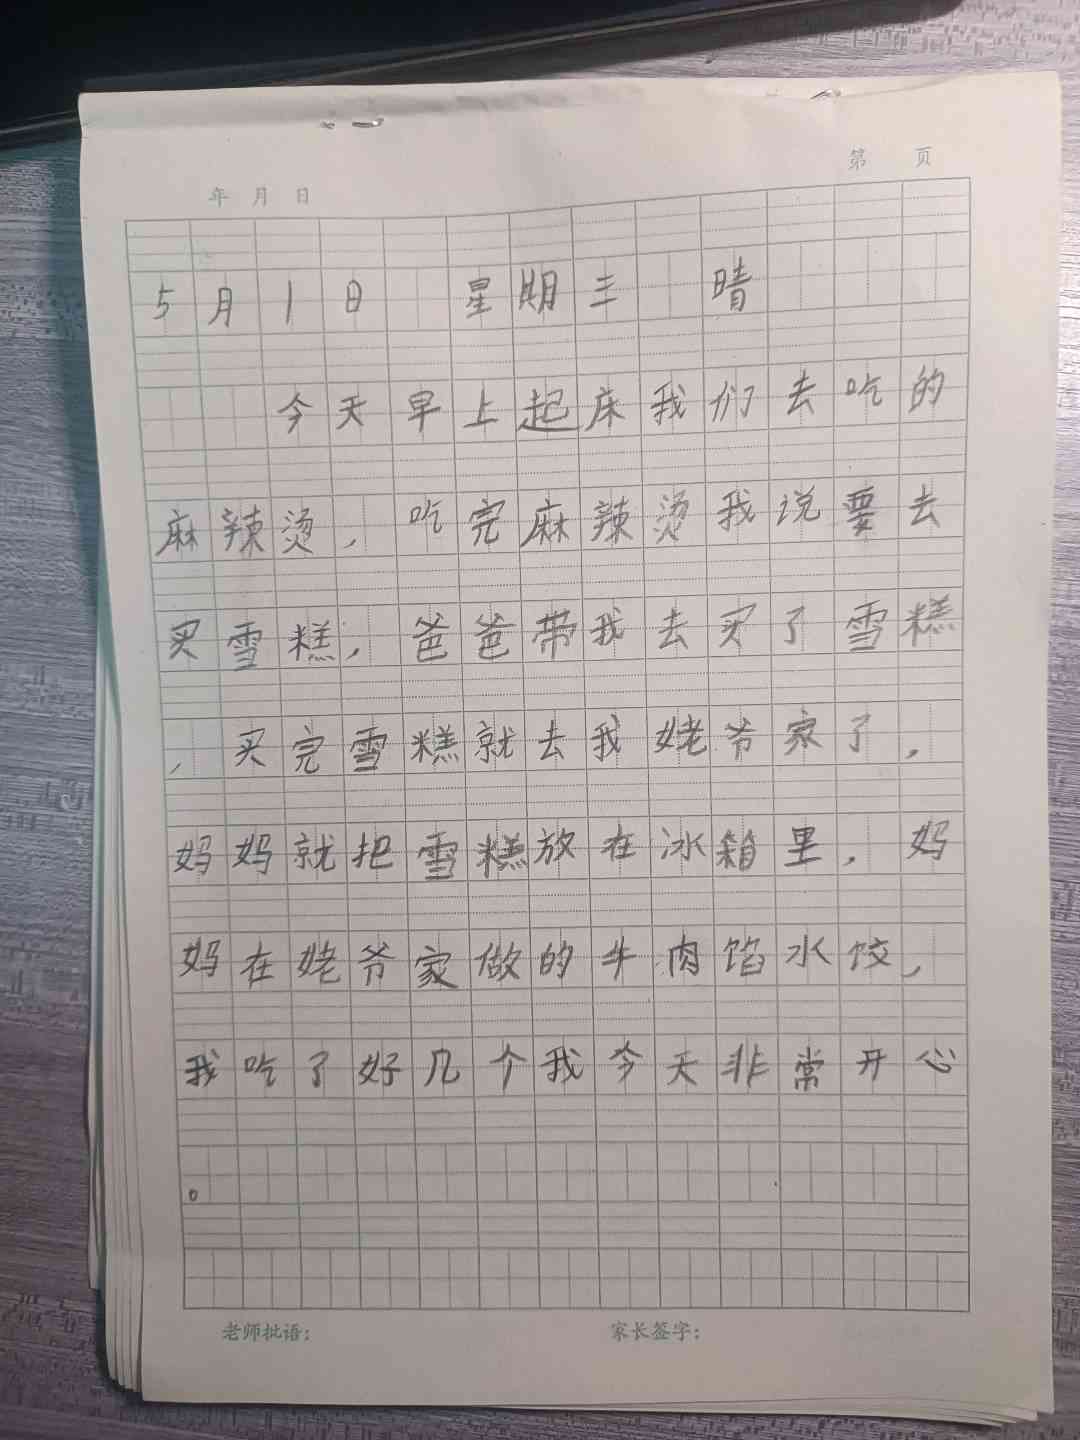 第 页
年 月 日
5月1日 星期三 晴
今天早上起床我们去吃的
麻辣烫，吃完麻辣烫我说要去
买雪糕，爸爸带我去买了雪糕
，买完雪糕就去我姥爷家了，
妈妈就把雪糕放在冰箱里，妈
妈在姥爷家做的牛肉馅水饺，
我吃了好几个我今天非常开心
。
老师批语： 家长签字：